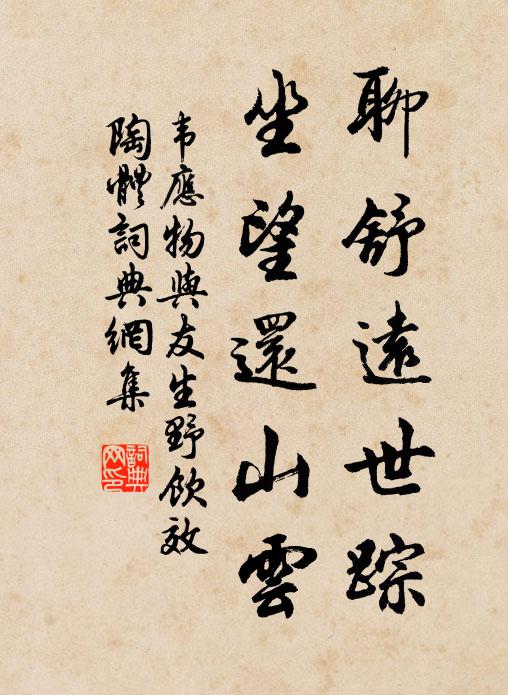 聊舒遠世踪
坐望還山雲
韦應物與友生野飲效
陶體詞典網集
詞典
网印